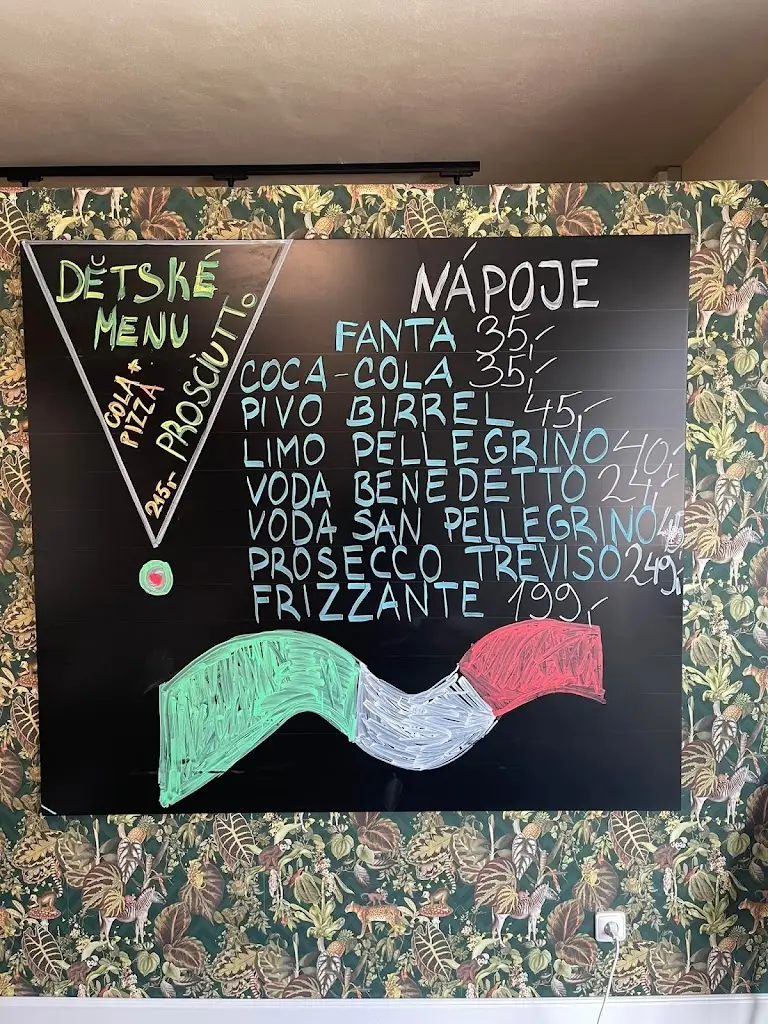 DĚTSKÉ
MENU
COLA +
PIZZA
PROSCIUTTO
245,-
NÁPOJE
FANTA 35,-
COCA-COLA 35,-
PIVO BIRREL 45,-
LIMO PELLEGRINO 40,-
VODA BENEDETTO 24,-
VODA SAN PELLEGRINO
PROSECCO TREVISO 249,-
FRIZZANTE 199,-